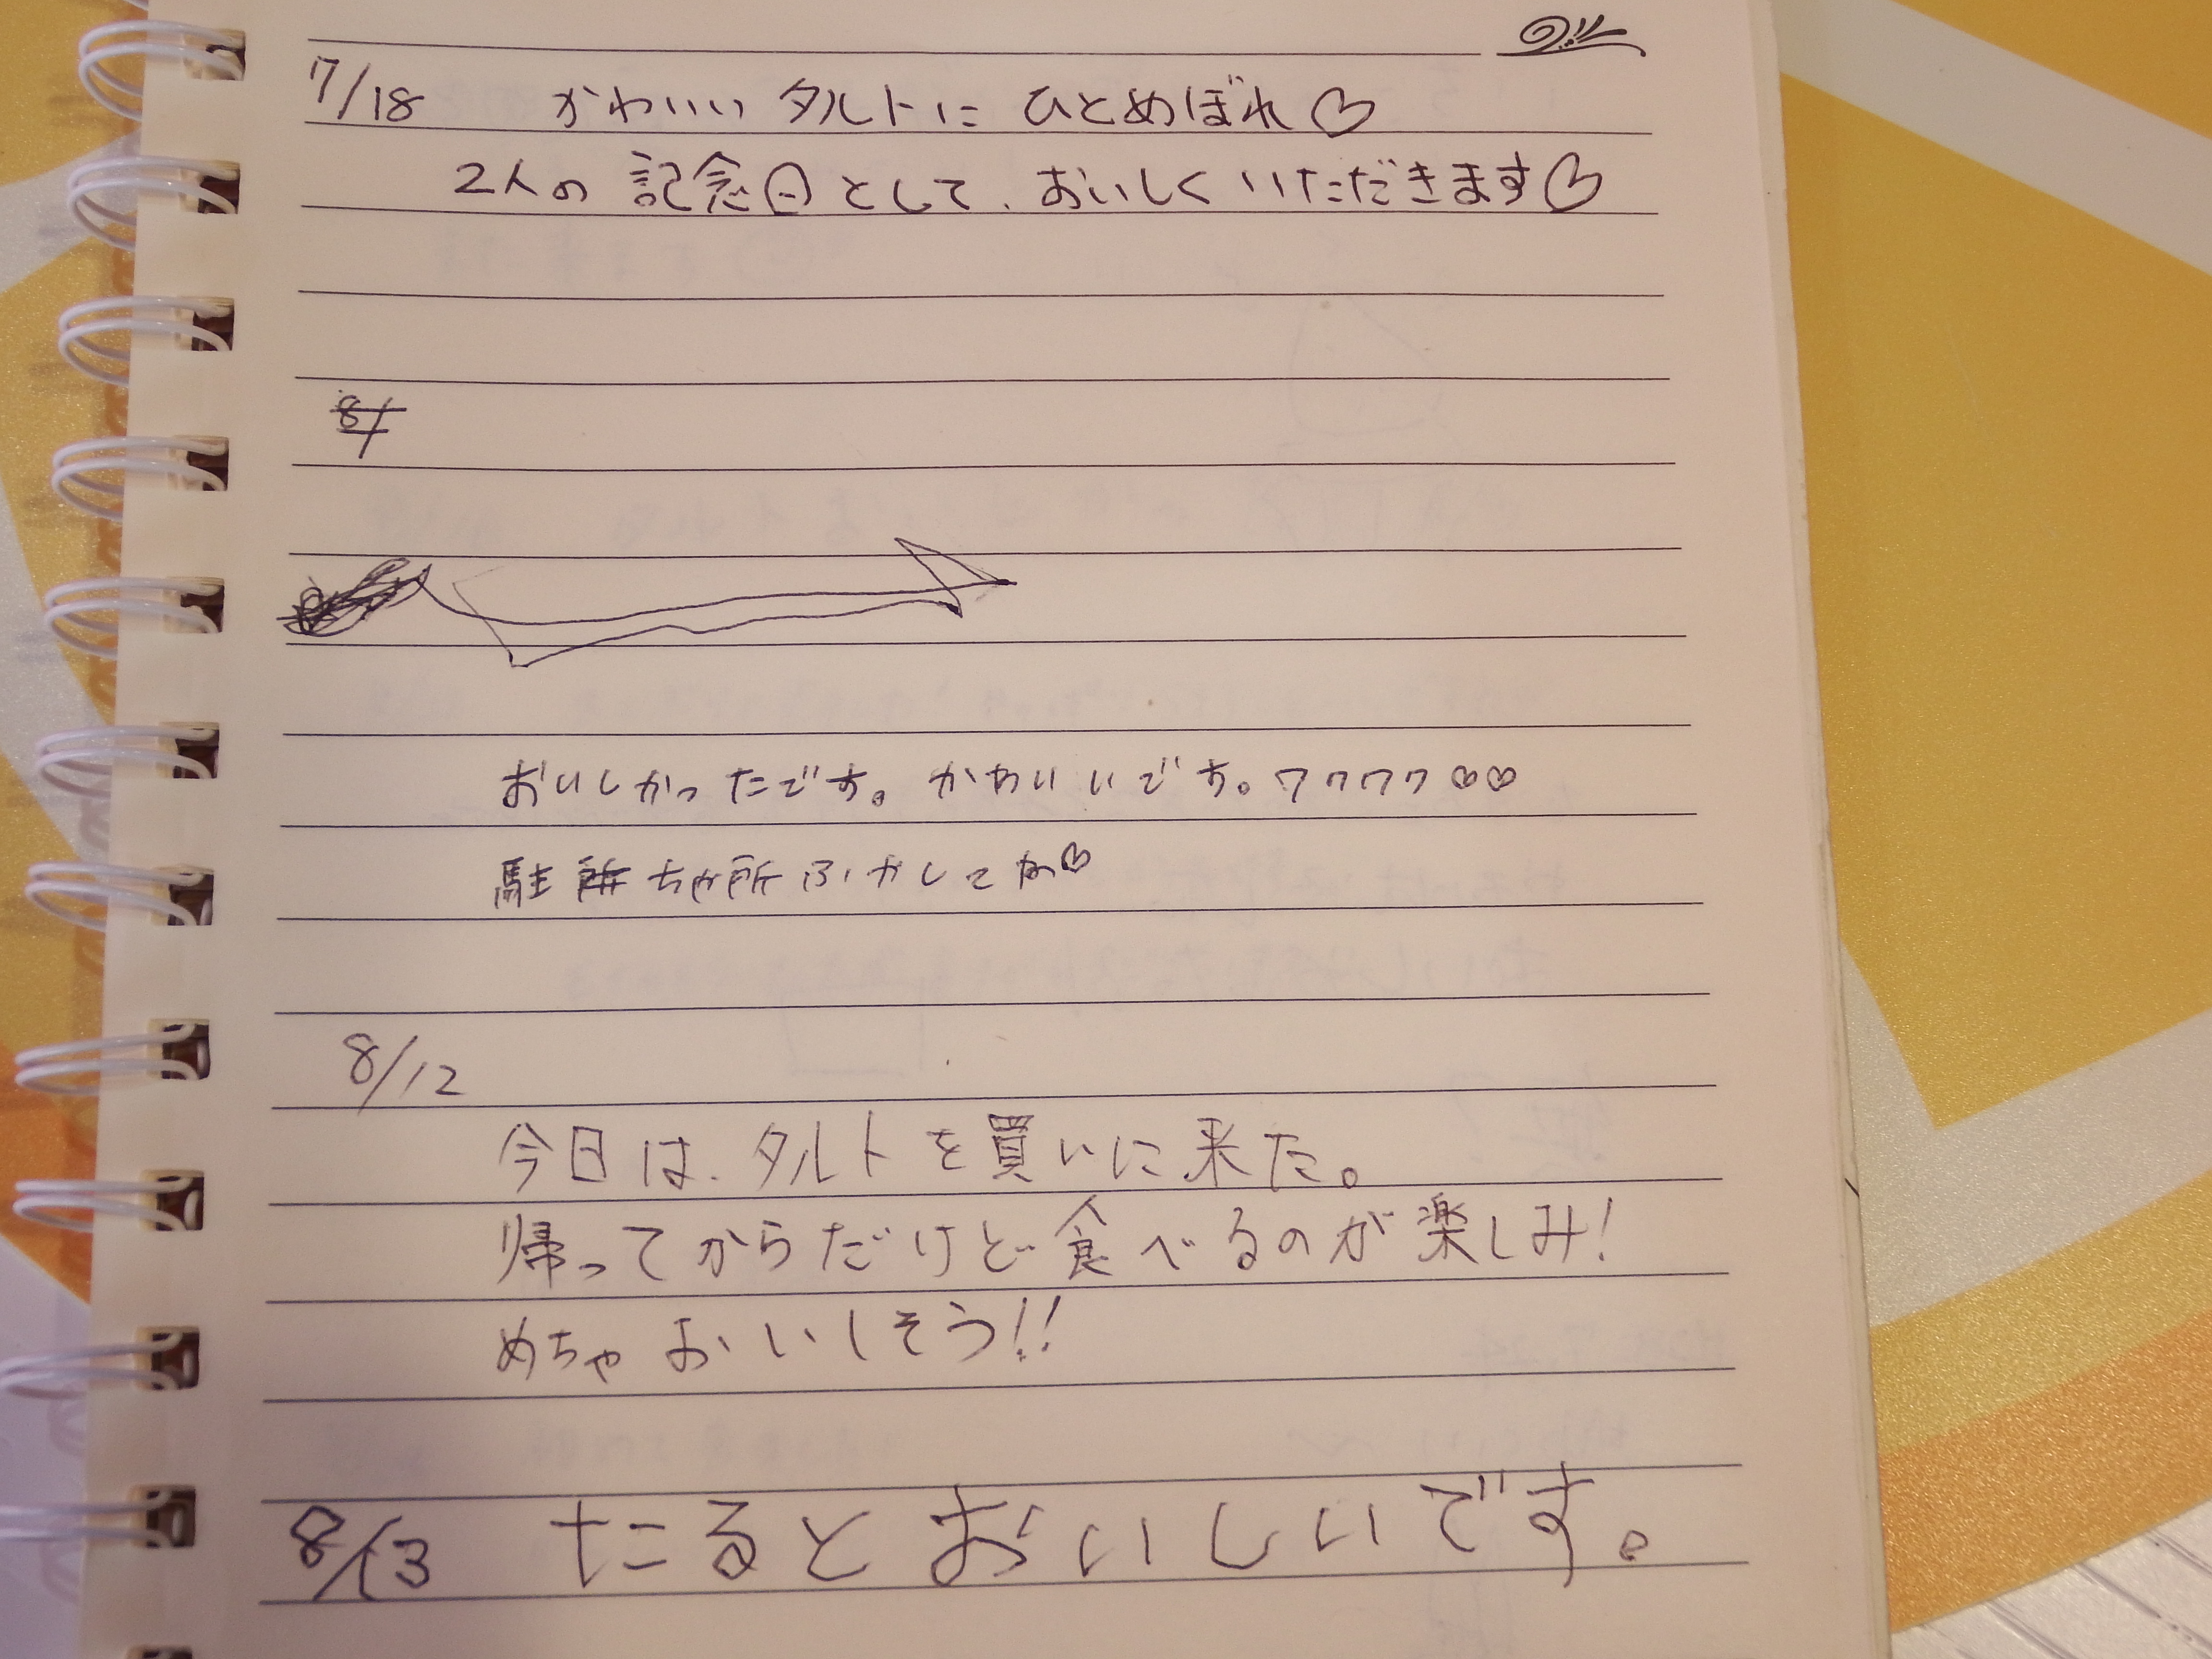 7/18 かわいい タルトに ひとめぼれ♡
2人の 記念日として、おいしく いただきます♡
8/
おいしかったです。かわいいです。ワワワワ♡♡
駐
8/12
今日は、タルトを買いに来た。
帰ってからだけど食べるのが楽しみ!
めちゃ おいしそう!!
8/13 たるとおいしいです。